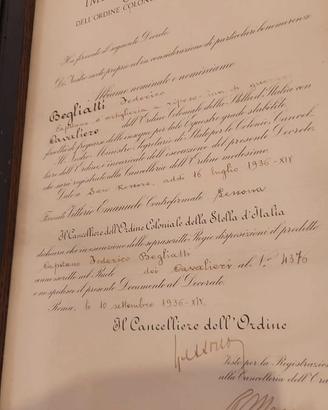 DELL'ORDINE COLONI
Ha firmato il seguente Decreto:
Di Nostro moto proprio ed in considerazione di particolari benemerenze
Abbiamo nominato e nominiamo
Begliatti Federico
Capitano d'artiglieria a riposo, inv. di guerra
Cavaliere dell'Ordine Coloniale della Stella d'Italia con
facoltà di fregiarsi delle insegne per tale Equestre grado stabilite.
Il Nostro Ministro Segretario di Stato per le Colonie, Cancel-
liere dell'Ordine, è incaricato dell'esecuzione del presente Decreto,
che sarà registrato alla Cancelleria dell'Ordine medesimo.
Dato a San Rossore, addì 16 luglio 1936-XIV
Firmato Vittorio Emanuele Controfirmato Lessona
Il Cancelliere dell'Ordine Coloniale della Stella d'Italia
dichiara che in esecuzione delle soprascritte Regie disposizioni il predetto
Capitano Federico Begliatti
venne iscritto nel Ruolo dei Cavalieri al N.° 4376
e ne spedisce il presente Documento al Decorato.
Roma, li 10 settembre 1936-XIV.
Il Cancelliere dell'Ordine
Visto per la Registrazio
alla Cancelleria dell'Ord